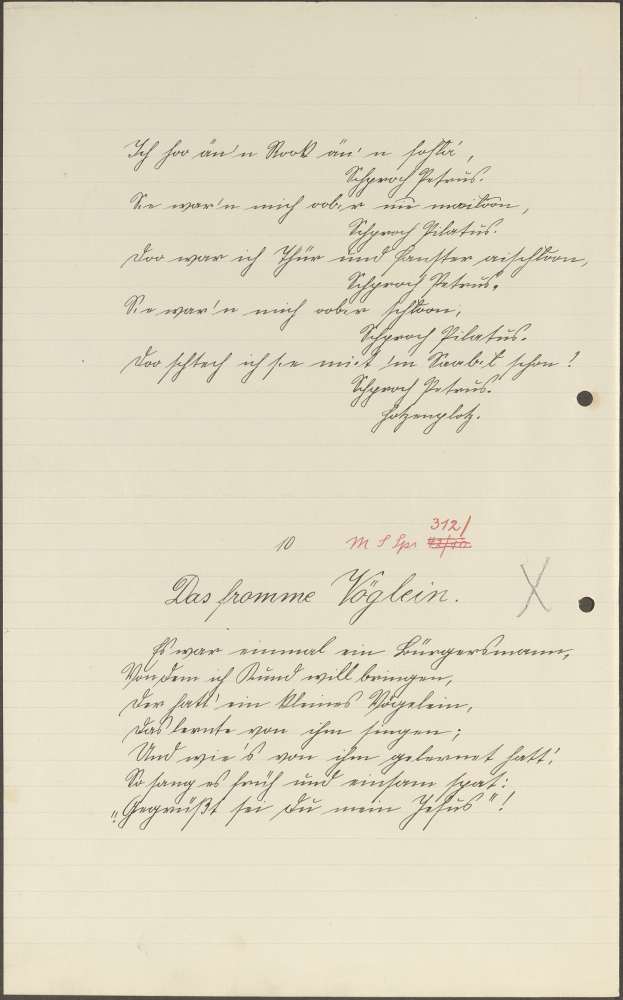 Ich hoo än'n Rook än' n
Schproch Petrus.
Sie war'n mich oober nie
Schproch Pilatus.
Doo war ich Thür und Fanster aischloon,
Schproch Petrus.
Sie war'n mich oober schloon,
Schproch Pilatus.
Doo schtech ich sie mit 'm Saabel schon!
Schproch Petrus.
Hotzenplotz.
10
M S Spr 312/
Das fromme Vöglein.
X
Es war einmal ein Bürgersmann,
Von dem ich Kund will bringen,
Der hatt' ein kleines Vögelein,
Das lernte von ihm singen;
Und wie's von ihm gelernet hatt',
So sang es früh und einsam spat:
„Gegrüßt sei Du mein Jesus"!